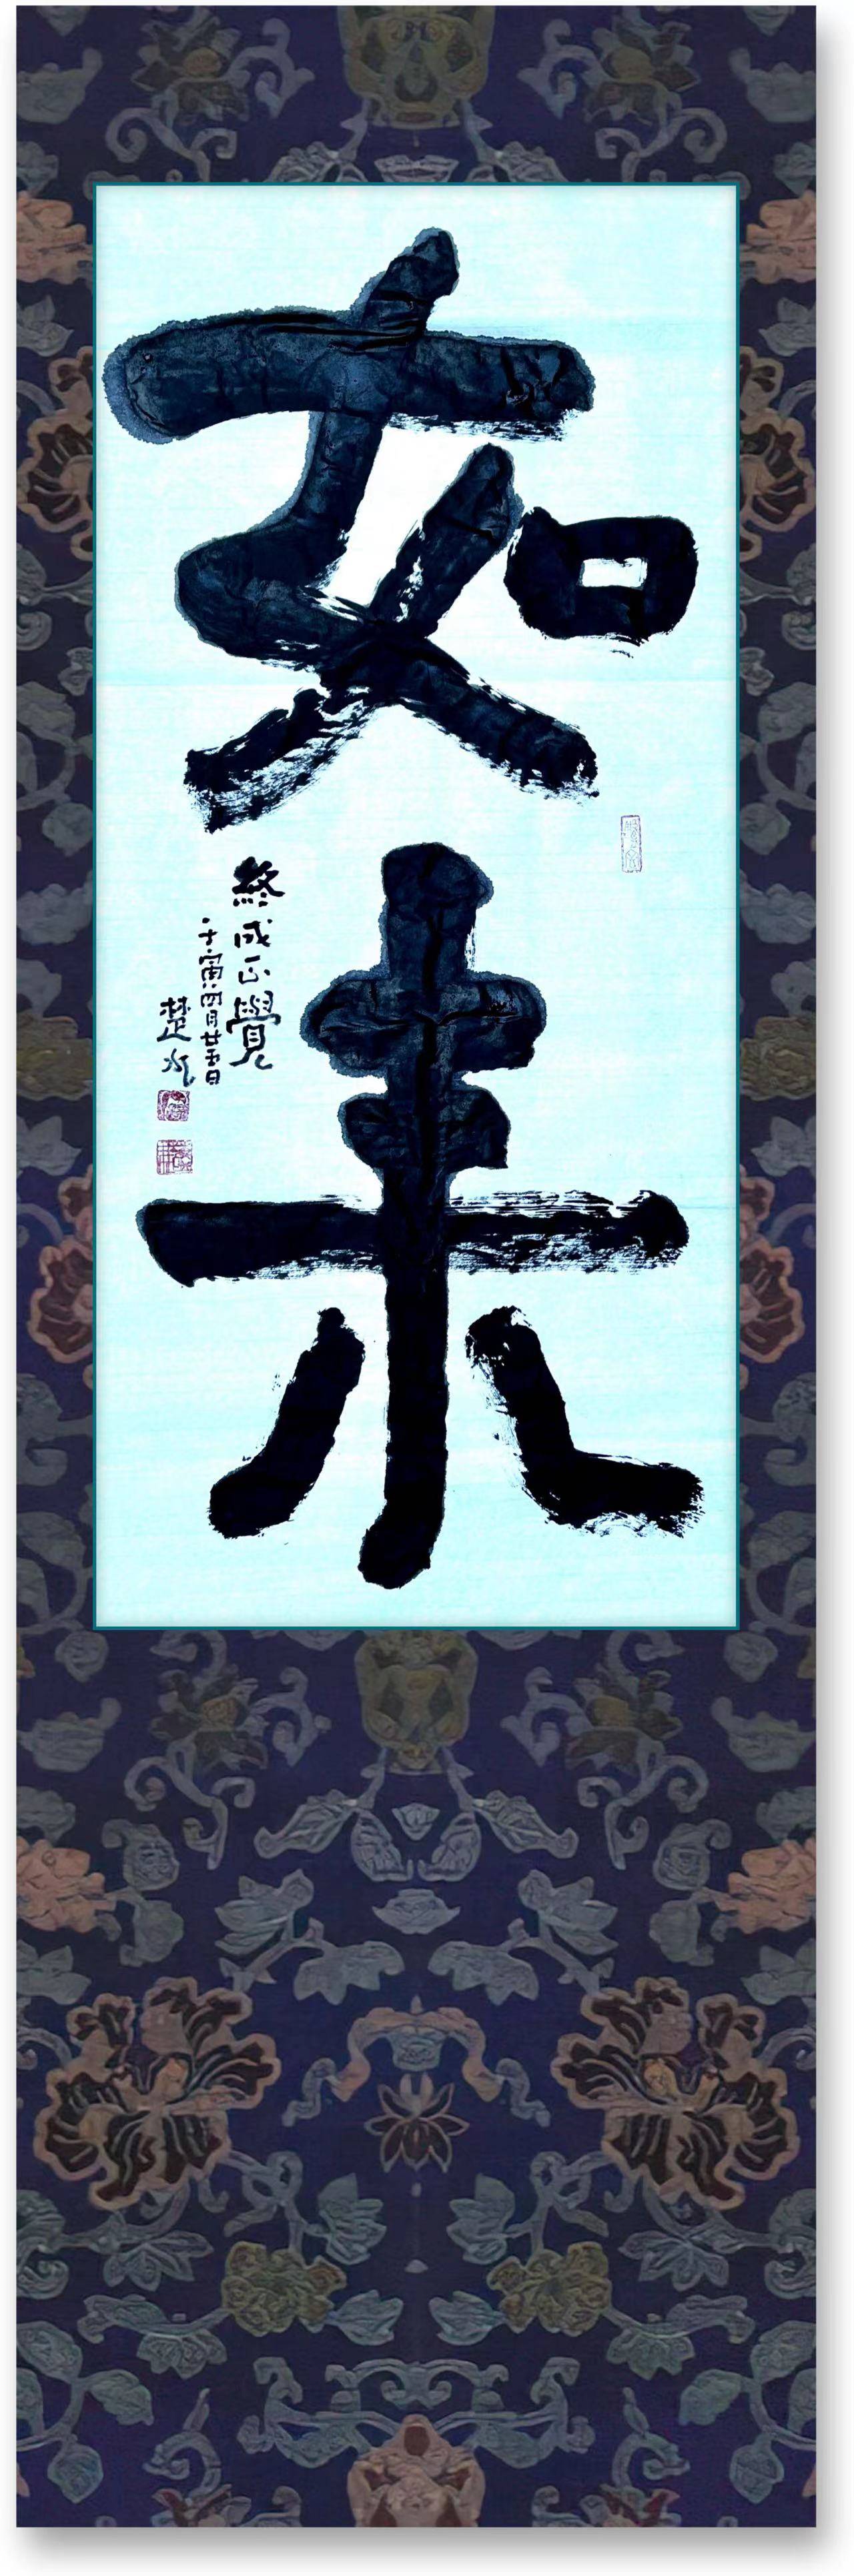 如来
終成正覺
壬寅四月廿五日
楚水